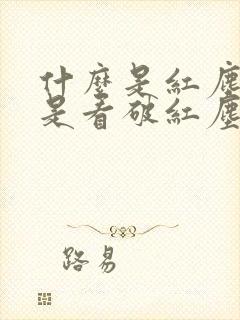 什麼是紅塵
是看破紅塵
路易